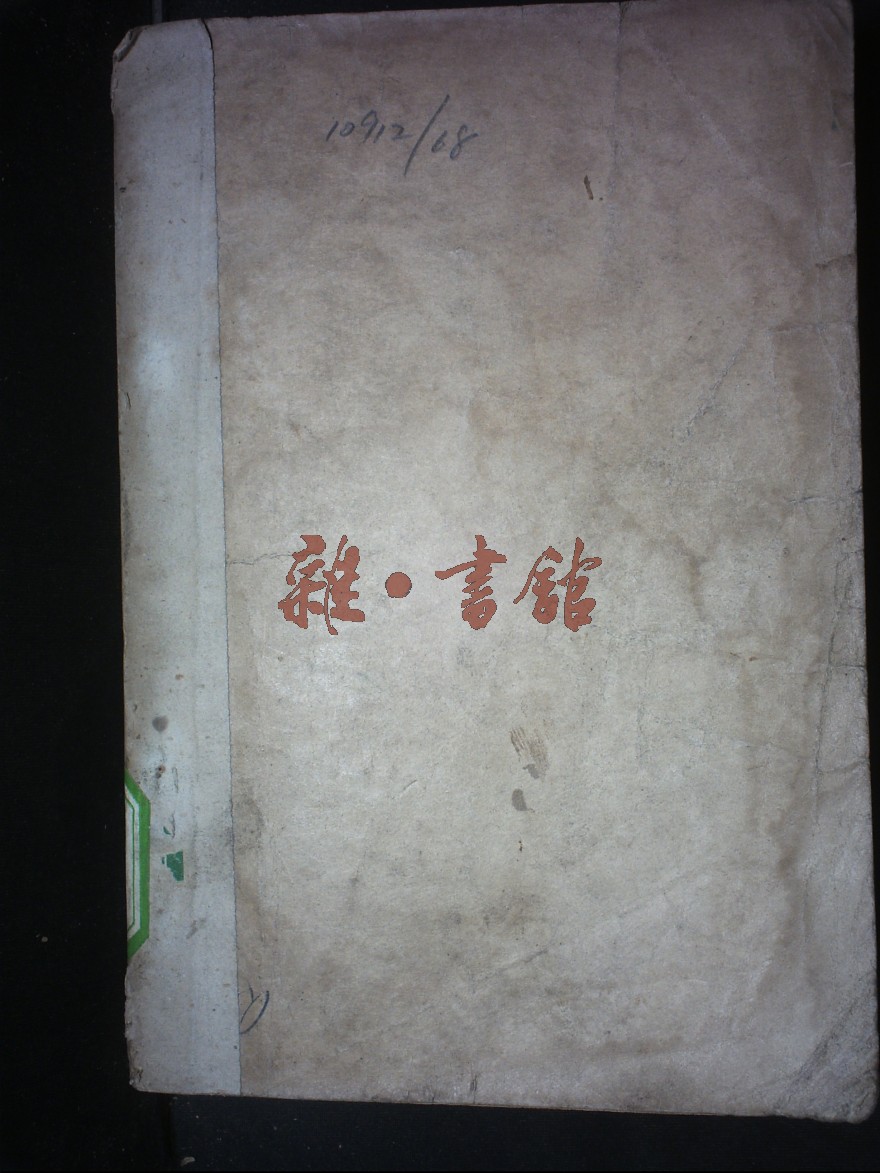 10912/68
雜·書館